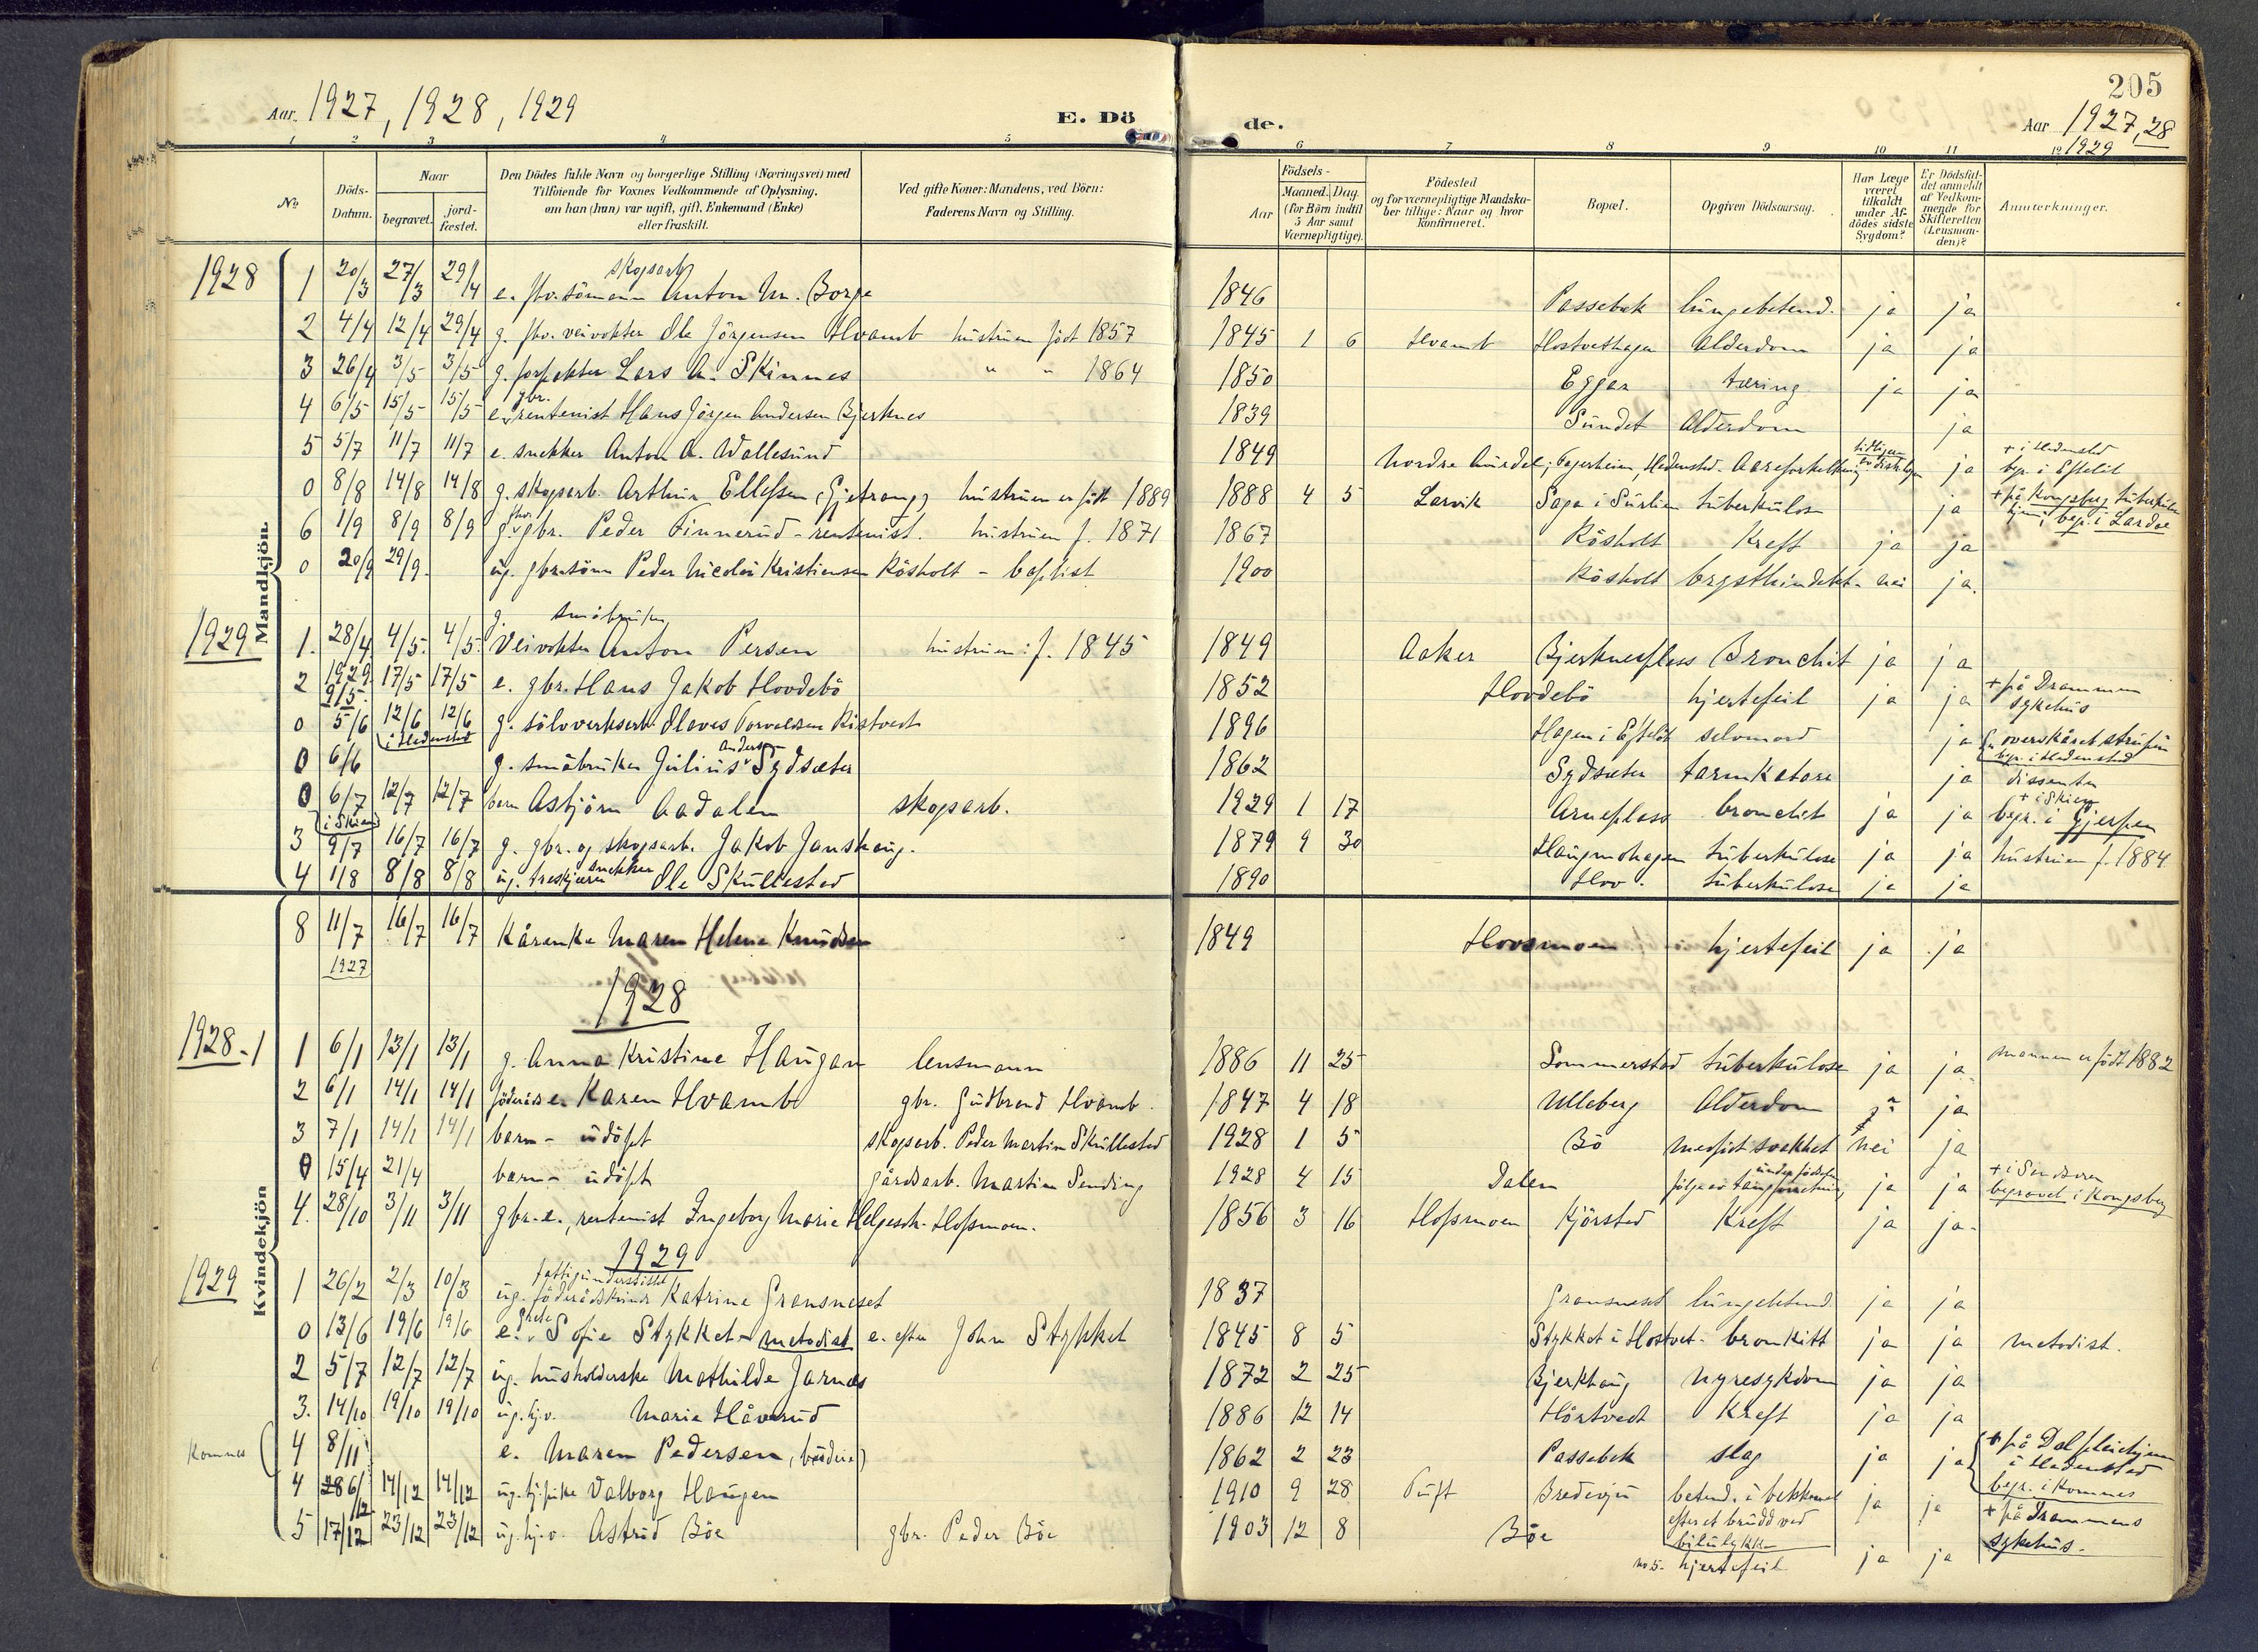 205
Aar. 1927, 1928, 1929
E. Dö
de.
Aar 1927, 28
1929
1 2 3 4 5 6 7 8 9 10 11 12
№
Döds-Datum.
Naar
begravet.
jord-fæstet.
Den Dödes fulde Navn og borgerlige Stilling (Næringsvei) med
Tilföiende for Voxnes Vedkommende af Oplysning,
om han (hun) var ugift, gift, Enkemand (Enke)
eller fraskilt.
Ved gifte Koner: Mandens, ved Börn:
Faderens Navn og Stilling.
Födsels-
Aar
Maaned. Dag.
(for Börn indtil
5 Aar samt
Værnepligtige).
Födested
og for værnepligtige Mandska-
ber tillige: Naar og hvor
konfirmeret.
Bopæl.
Opgiven Dödsaarsag.
Har Læge
været
tilkaldt
under Af-
dödes sidste
Sygdom?
Er Dödsfal-
det anmeldt
af Vedkom-
mende for
Skifteretten
(Lensman-
den)?
Anmærkninger.
Mandkjön.
1928
skogsarb.
1 20/3 27/3 29/4 e. fhv. sömann Anton M. Borge 1846 Passebæk lungebetend. ja ja
2 4/4 12/4 29/4 g. fhv. veivokter Ole Jörgensen Hvamb hustruen födt 1857 1845 1 6 Hvamb Hostvethagen Alderdom ja ja
3 26/4 3/5 3/5 g. forpakter Lars A. Skinnes " " 1864 1850 Eggar tæring ja ja
4 6/5 15/5 15/5 e. gbr. rentenist Hans Jörgen Andersen Bjerknes 1839 Sundet Alderdom ja
5 5/7 11/7 11/7 e. snekker Anton A. Wallesund 1849 Nordre Aurdal; Fagerheim, Hedenstad. Aareforkalkning ja + i Hedenstad
begr. i Efteløt
0 8/8 14/8 14/8 g. skogsarb. Arthur Ellefsen (Gjetrang) hustruen er födt 1889 1888 4 5 Larvik Saga i Surlien tuberkulose ja + på Kongsberg tuberkulose
hjem; begr. i Lardal
6 1/9 8/9 8/9 g. fhv. gbr. Peder Finnerud - rentenist. hustruen f. 1871 1867 Røsholt Kreft ja ja
0 20/9 29/9. ug. gbr.sönn Peder Nicolai Kristiansen Røsholt - baptist 1900 Røsholt brysthindebet. nei ja.
1929
g. småbruker
1. 28/4 4/5. 4/5. Veivokter Anton Persen hustruen: f. 1845 1849 Aaker Bjerknesplass Bronchit ja ja
2 1929 9/5. 17/5 17/5 e. gbr. Hans Jakob Hovdebö 1852 Hovdebö hjertefeil ja ja + på Drammen
sykehus
0 5/6 12/6 12/6 g. sölvverksarb. Olaves Torvaldsen Ristvedt 1896 Hagen i Efteløt selvmord ja overskåret strupen
i Hedenstad
begr. i Hedenstad
0 6/6 g. småbruker Julius Andersen Sydsæter 1862 Sydsæter tarmkatarr ja dissenter
0 6/7 12/7 12/7 barn Asbjörn Aadalen skogsarb. 1929 1 17 Arneplass bronchit ja ja + i Skien
begr. i Gjerpen
(i Skien)
3 9/7 16/7 16/7 g. gbr. og skogsarb. Jakob Janshaug. 1879 9 30 Haugmohagen tuberkulose ja ja hustruen f. 1884
4 1/8 8/8 8/8 ug. treskjærer snekker Ole Skullestad 1890 Hov. tuberkulose ja ja
Kvindekjön
8 11/7 16/7 16/7 Kårenke Maren Helene Knudsen 1849 Hovsmoen hjertefeil ja ja
1927
1928
1928-1
1 6/1 13/1 13/1 g. Anna Kristine Haugan lensmann 1886 11 25 Sommerstad tuberkulose ja ja mannen er födt 1882
2 6/1 14/1 14/1 föderåds e. Karen Hvamb gbr. Gudbrand Hvamb. 1847 4 18 Ulleberg Alderdom ja ja
3 7/1 14/1 14/1 barn - udöpt skogsarb. Peder Martin Skullestad 1928 1 5 Bö medfödt svakhet nei ja
0 15/4 21/4 barn - udöpt gårdsarb. Martin Sending 1928 4 15 Dalen fölge av tangforretning under födselen ja ja + i Sandsvær
begravet i Kongsberg
4. 28/10 3/11 3/11 gbr.e., rentenist Ingeborg Marie Helgesdt. Hofsmoen. 1856 3 16 Hofsmoen Kjörstad Kreft ja ja-
1929
1929
fattigunderstöttet
1 26/2 2/3 10/3 ug. föderådskvinde Katrine Gransneset 1837 Gransneset lungebetend. ja ja
0 13/6 19/6 19/6 e. Grete Sofie Stykket - metodist e. efter John Stykket 1845 8 5 Stykket i Hostvet - bronkitt ja ja metodist.
2 5/7 12/7 12/7 ug. husholderske Mathilde Jarnes 1872 2 25 Bjerkhaug nyresykdom ja ja
3. 14/10 19/10 19/10 ug. hj.v. Marie Håverud 1886 12 14 Hörtvedt Kreft ja ja
Komnes
4 8/11 e. Maren Pedersen, 1862 2 23 Passebæk slag ja ja + på Dal pleiehjem
i Hedenstad
begr. i Komnes
4 6/12 14/12 14/12 ug. tj.pike Valborg Haugen 1910 9 28 Tuft Bredesju betend. i bekkenet
efter et brudd ved
bilulykke ja ja + på Drammens
sykehus.
5 17/12 23/12 23/12 ug. hj.v. Astrid Böe gbr. Peder Böe 1903 12 8 Böe
no 5. hjertefeil ja ja